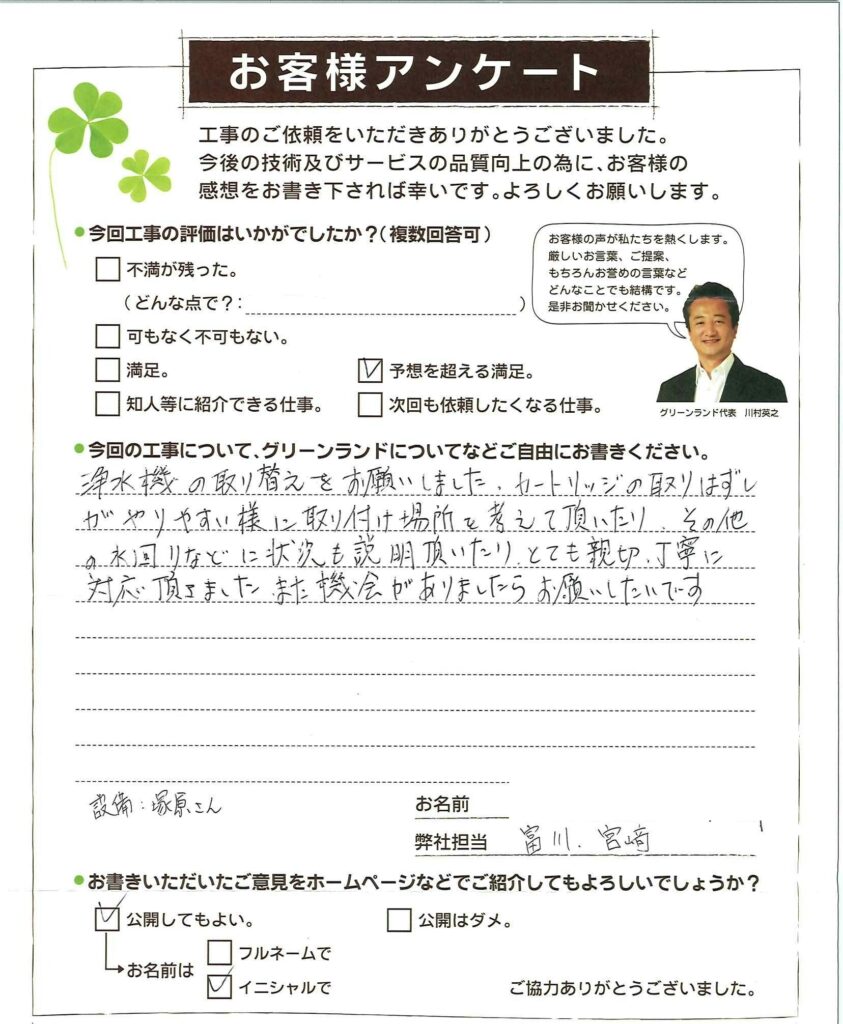 お客様アンケート
工事のご依頼をいただきありがとうございました。
今後の技術及びサービスの品質向上の為に、お客様の
感想をお書き下されば幸いです。よろしくお願いします。
今回工事の評価はいかがでしたか？(複数回答可)
不満が残った。
(どんな点で？: )
可もなく不可もない。
満足。
予想を超える満足。
知人等に紹介できる仕事。
次回も依頼したくなる仕事。
お客様の声が私たちを熱くします。
厳しいお言葉、ご提案、
もちろんお誉めの言葉など
どんなことでも結構です。
是非お聞かせください。
グリーンランド代表 川村英之
今回の工事について、グリーンランドについてなどご自由にお書きください。
浄水機の取り替えをお願いしました。カートリッジの取りはずし
がやりやすい様に取り付け場所を考えて頂いたり、その他
の水回りなどに状況も説明頂いたり、とても親切、丁寧に
対応頂きました また機会がありましたらお願いしたいです
設備:塚原さん
お名前
弊社担当 富川、宮﨑
お書きいただいたご意見をホームページなどでご紹介してもよろしいでしょうか？
公開してもよい。
公開はダメ。
お名前は
フルネームで
イニシャルで
ご協力ありがとうございました。